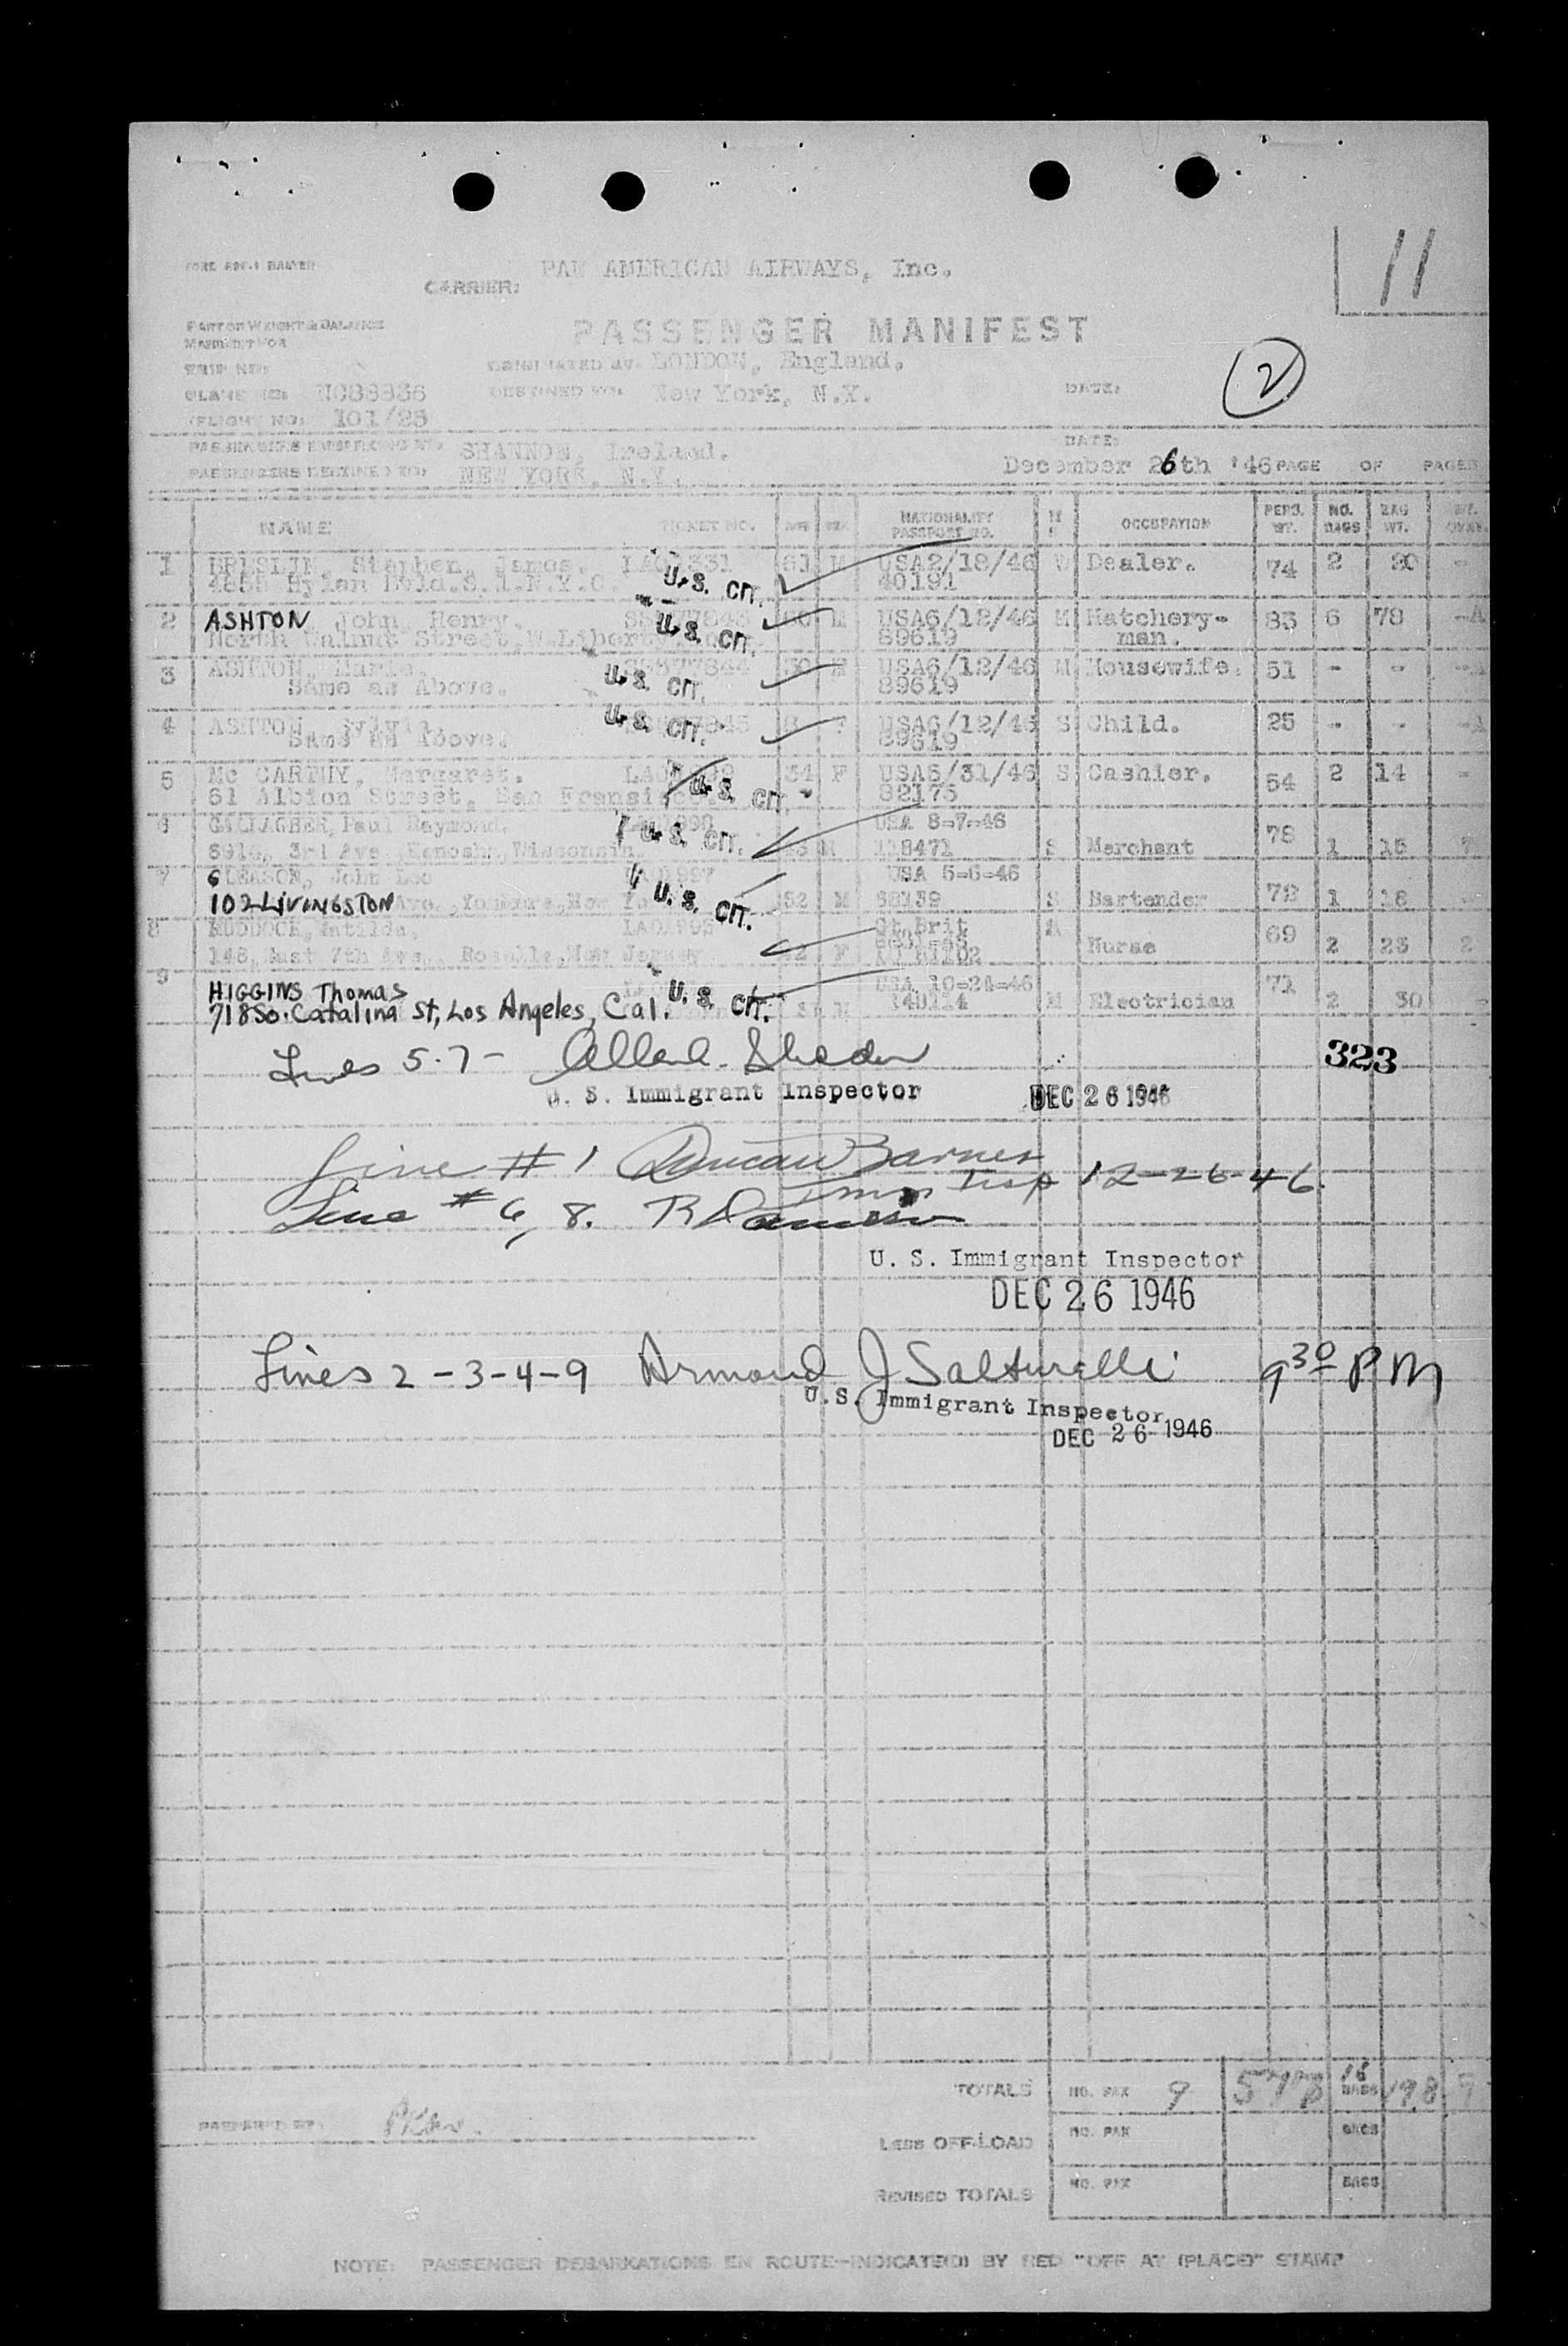 11
PAN AMERICAN AIRWAYS, Inc.
CARRIER:
PART OF WEIGHT & BALANCE
MANIFEST FOR
PASSENGER MANIFEST
TRIP NO:
ORIGINATED AT: LONDON, England.
2
PLANE NO: NC88836
DESTINED TO: New York, N.Y.
DATE:
(FLIGHT NO: 101/25
PASSENGERS EMBARKING AT: SHANNON, Ireland.
DATE:
PASSENGERS DESTINED TO: NEW YORK, N.Y.
December 26th '46 PAGE OF PAGES
NAME TICKET NO. AGE SEX NATIONALITY PASSPORT NO. M S OCCUPATION PERS. WT. NO. BAGS BAG WT.
1 BRESLIN, Stephen, James. 61 M USA2/18/46 W Dealer. 74 2 20 -
Hylan Bvld.S.I.N.Y.C. U.S. CIT. 40191
2 ASHTON John Henry. M USA6/12/46 M Hatchery- 83 6 78 -A
North Walnut Street, W.Libert U.S. CIT. 89619 man.
3 ASHTON, Marie. 30 USA6/12/46 M Housewife. 51 - -
Same as Above. U.S. CIT. 89619
4 ASHTON, Sylvia. 8 F USA6/12/46 S Child. 25 - -
Same as Above. U.S. CIT. 89619
5 Mc CARTHY, Margaret. 34 F USA5/31/46 S Cashier. 54 2 14 -
61 Albion Street, San Fransisco. U.S. CIT. 82175
6 GALLAGHER, Paul Raymond. USA 8-7-46 78
3rd Ave., Kenosha, Wisconsin. U.S. CIT. M S Merchant 1 15
7 GLEASON, John Leo USA 5-6-46
102 LIVINGSTON Ave., Yonkers, New U.S. CIT. 52 M S Bartender 72 1 18
8 RUDDOCK, Matilda. LA01995 Gt.Brit 69
148, East 7th Ave., Roselle, New Jersey 42 F Nurse 2 23 2
9 HIGGINS Thomas USA 10-24-46 71
718 So. Catalina St, Los Angeles, Cal. U.S. CIT. M M Electrician 2 30 -
Lines 5-7 -
323
U. S. Immigrant Inspector DEC 26 1946
Line # 1 Duncan Barnes
Imm Insp 12-26-46.
Line # 6, 8.
U. S. Immigrant Inspector
DEC 26 1946
Lines 2-3-4-9 Armond J Salturelli 9 30 PM
U.S. Immigrant Inspector
DEC 26 1946
TOTALS NO. PAX 9 578 16 BAGS 198 9
PREPARED BY:
LESS OFF-LOAD NO. PAX BAGS
REVISED TOTALS NO. PAX BAGS
NOTE: PASSENGER DEBARKATIONS EN ROUTE—INDICATE(D) BY RED "OFF AT (PLACE)" STAMP